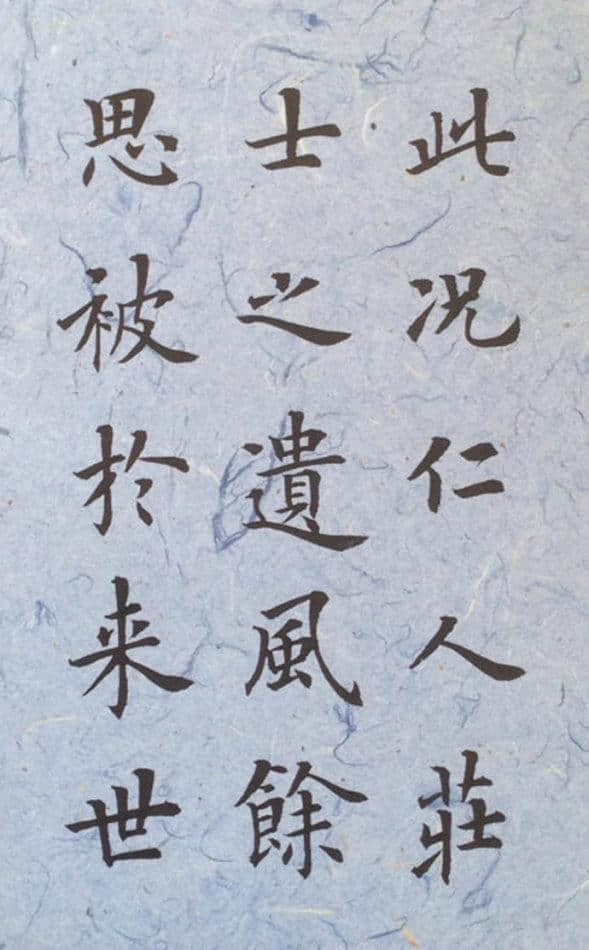 此况仁人莊
士之遺風餘
思被於来世